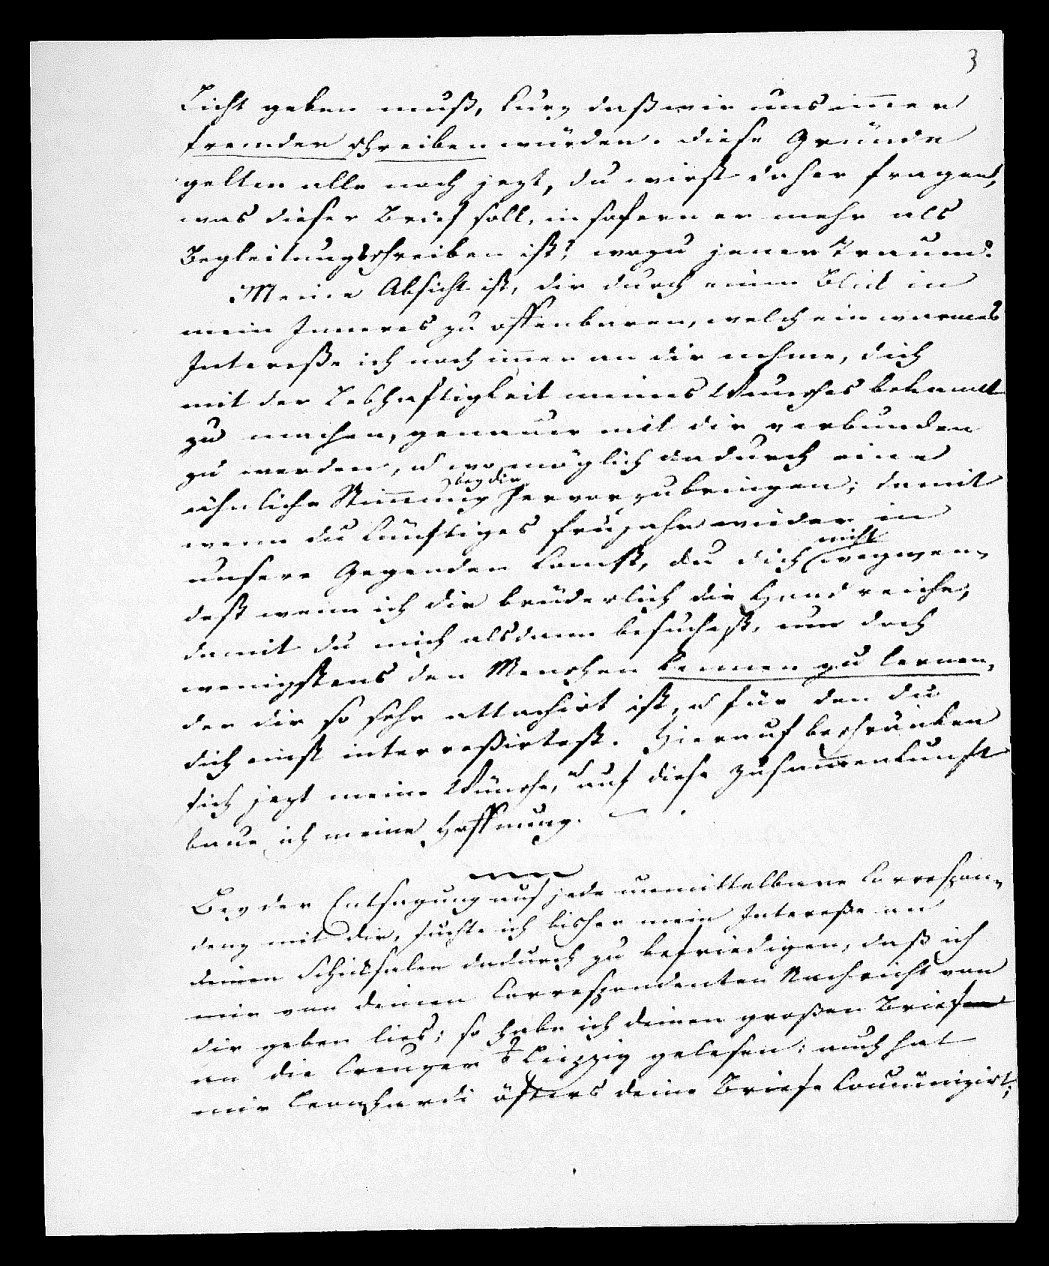 3
Licht geben muß, kurz daß wir uns immer
fremder schreiben würden. diese Gründe
gelten alle noch jezt, du wirst daher fragen,
was dieser Brief soll, in sofern er mehr als
Begleitungsschreiben ist? wozu jener Traum?
Meine Absicht ist, dir durch einen Blick in
mein Inneres zu offenbaren, welch ein warmes
Intereße ich noch immer an dir nehme, dich
mit der Lebhaftigkeit meines Wunsches bekannt
zu machen, genauer mit dir verbunden
zu werden, u wo möglich dadurch eine
ähnliche Stimmung bey dir hervorzubringen; damit
wenn du künftiges Frühjahr wieder in
unsere Gegenden komst, du dich nicht wegwen-
dest wenn ich dir brüderlich die Hand reiche;
damit du mich alsdann besuchest, um doch
wenigstens den Menschen kennen zu lernen,
der dir so sehr attachirt ist, u für den du
dich einst interreßirtest. Hierauf beschränken
sich jezt meine Wünsche, u auf diese Zusammenkunft
baue ich meine Hoffnung.
Bey der Entsagung auf jede unmittelbare Correspon-
denz mit dir, suchte ich bisher mein Intereße an
deinen Schicksalen dadurch zu befriedigen, daß ich
mir von deinen Correspondenten Nachricht von
dir geben lies; so habe ich deinen großen Brief
an die Creuzer Leipzig gelesen; auch hat
mir Leonhardi öfters deine Briefe kommunizirt;